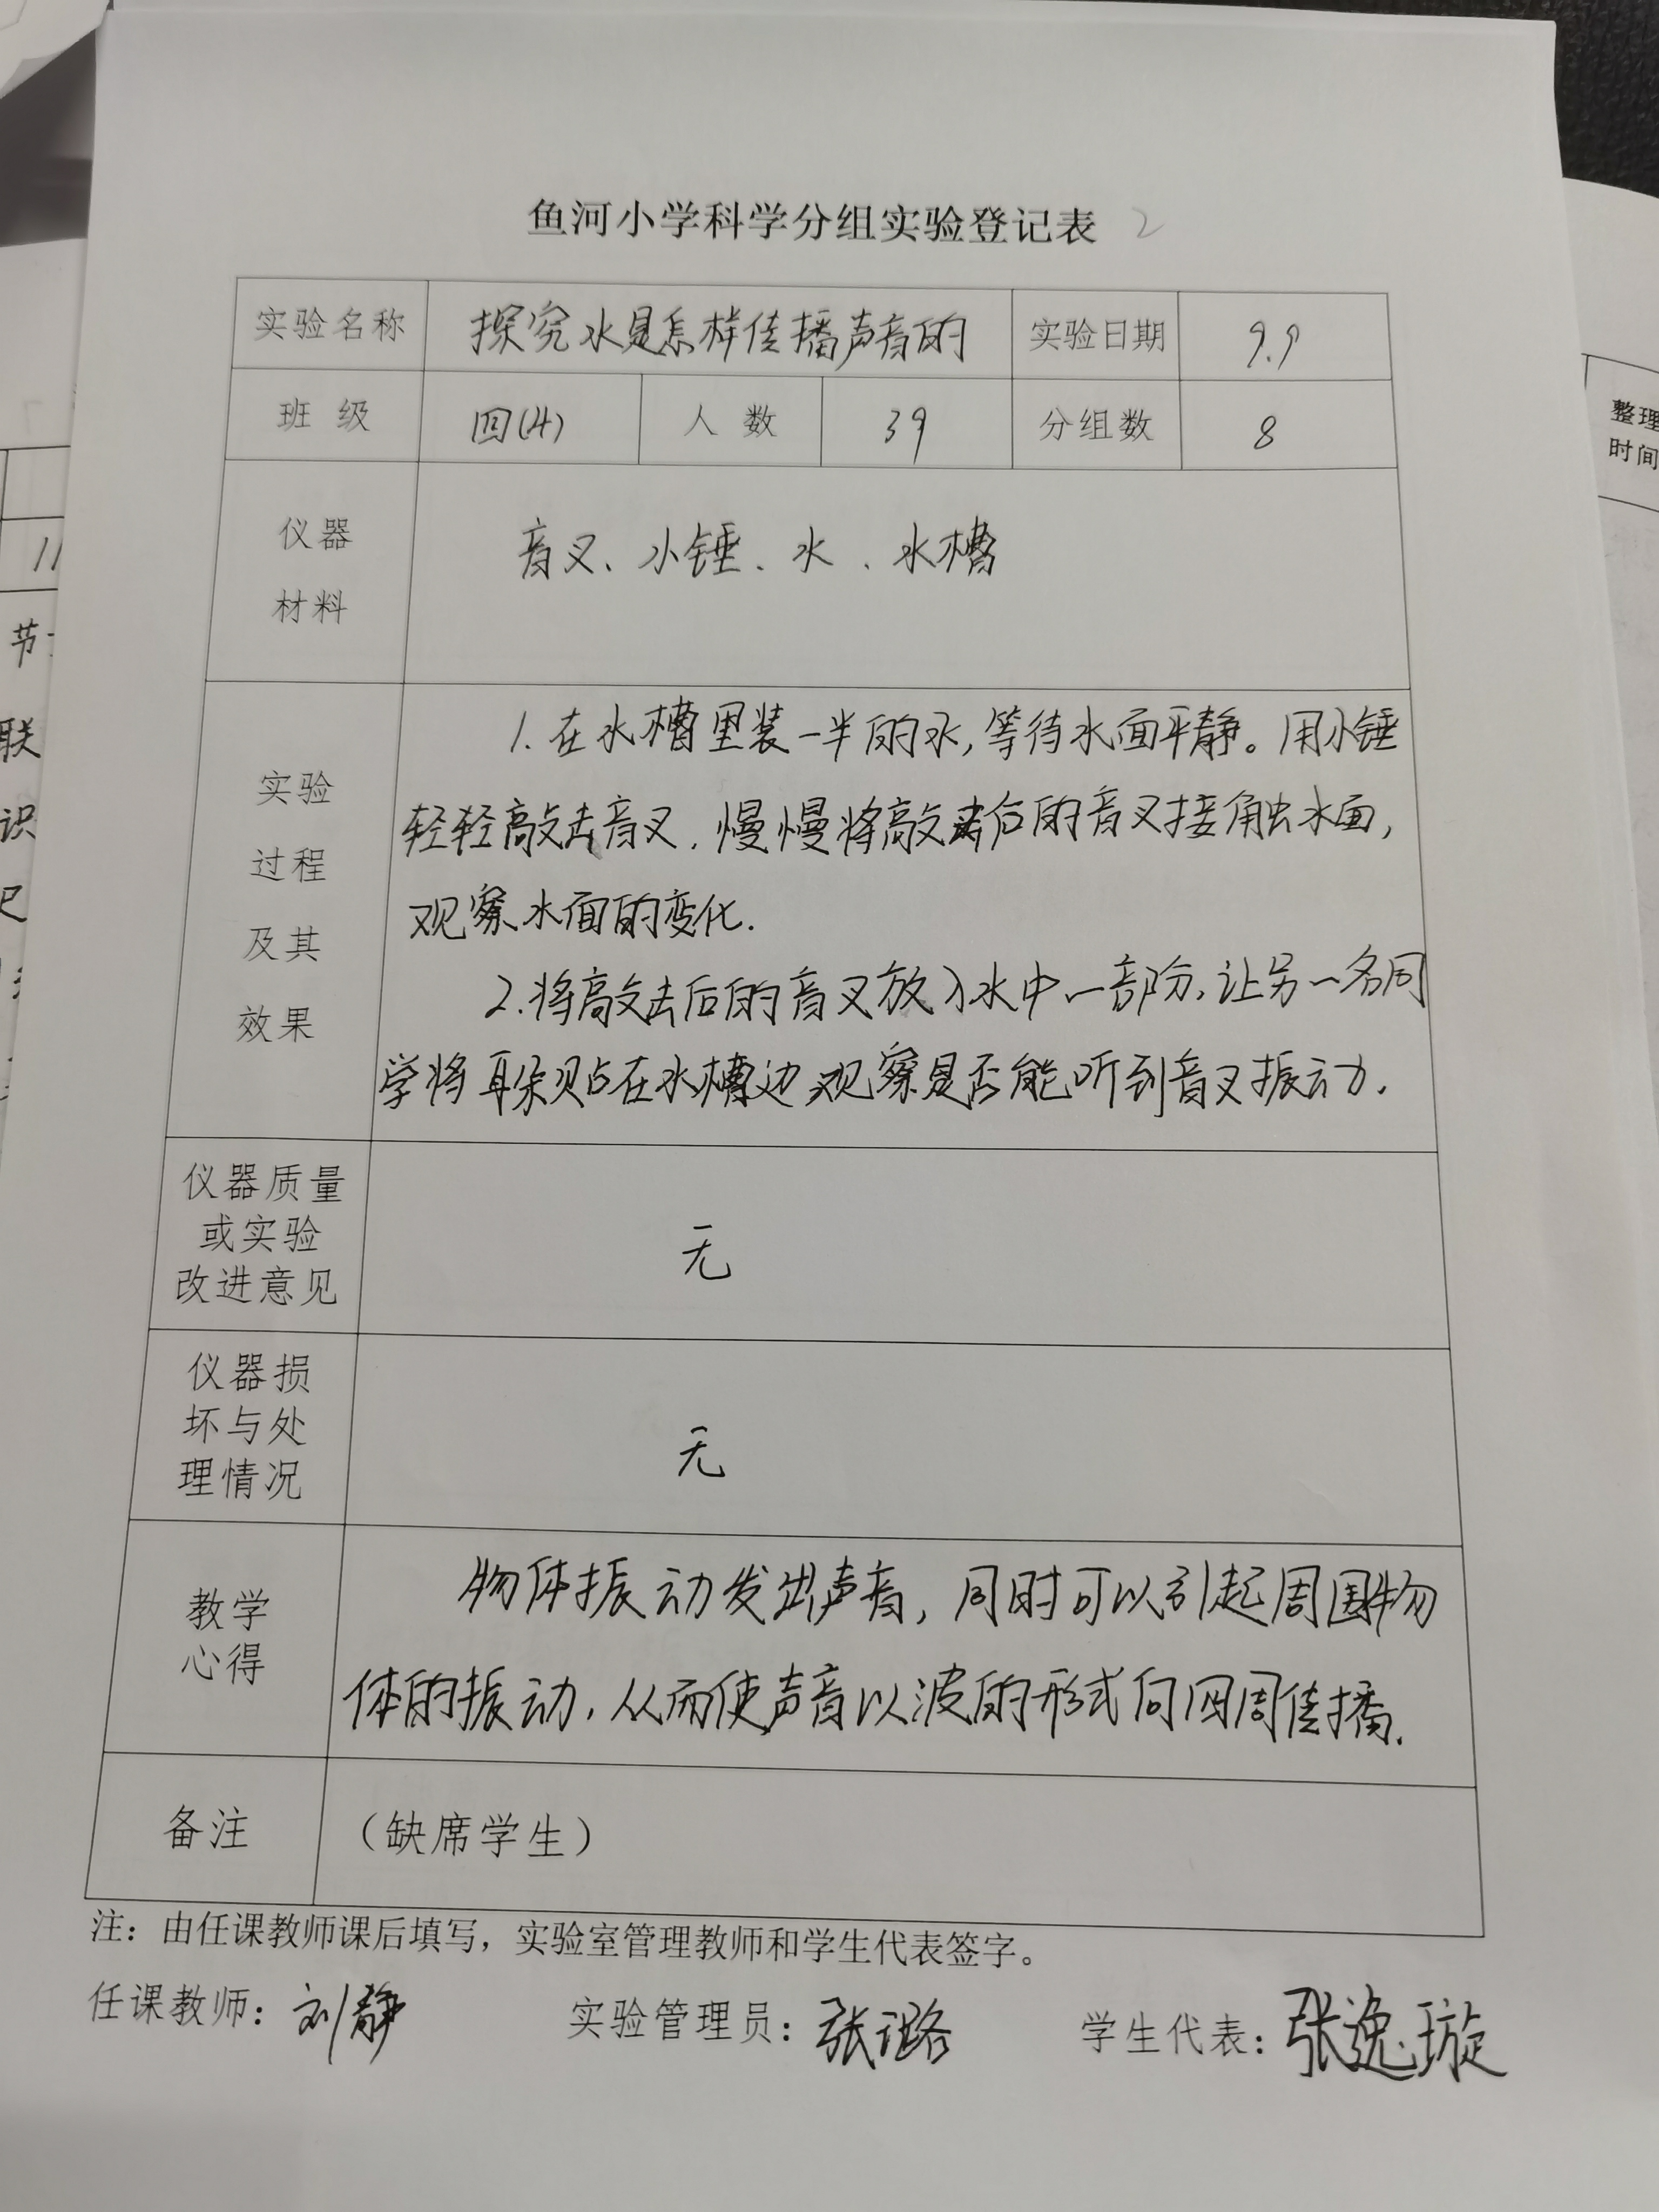 鱼河小学科学分组实验登记表 2
实验名称 探究水是怎样传播声音的 实验日期 9.9
班 级 四(4) 人 数 39 分组数 8
仪器
材料
音叉、小锤、水、水槽
实验
过程
及其
效果
1.在水槽里装一半的水,等待水面平静。用小锤
轻轻敲击音叉,慢慢将敲击后的音叉接触水面,
观察水面的变化.
2.将敲击后的音叉放入水中一部分,让另一名同
学将耳朵贴在水槽边观察是否能听到音叉振动.
仪器质量
或实验
改进意见
无
仪器损
坏与处
理情况
无
教学
心得
物体振动发出声音,同时可以引起周围物
体的振动,从而使声音以波的形式向四周传播.
备注 (缺席学生)
注：由任课教师课后填写，实验室管理教师和学生代表签字。
任课教师：刘静 实验管理员：张璐 学生代表：张逸璇
整理
时间
11
节
联
识